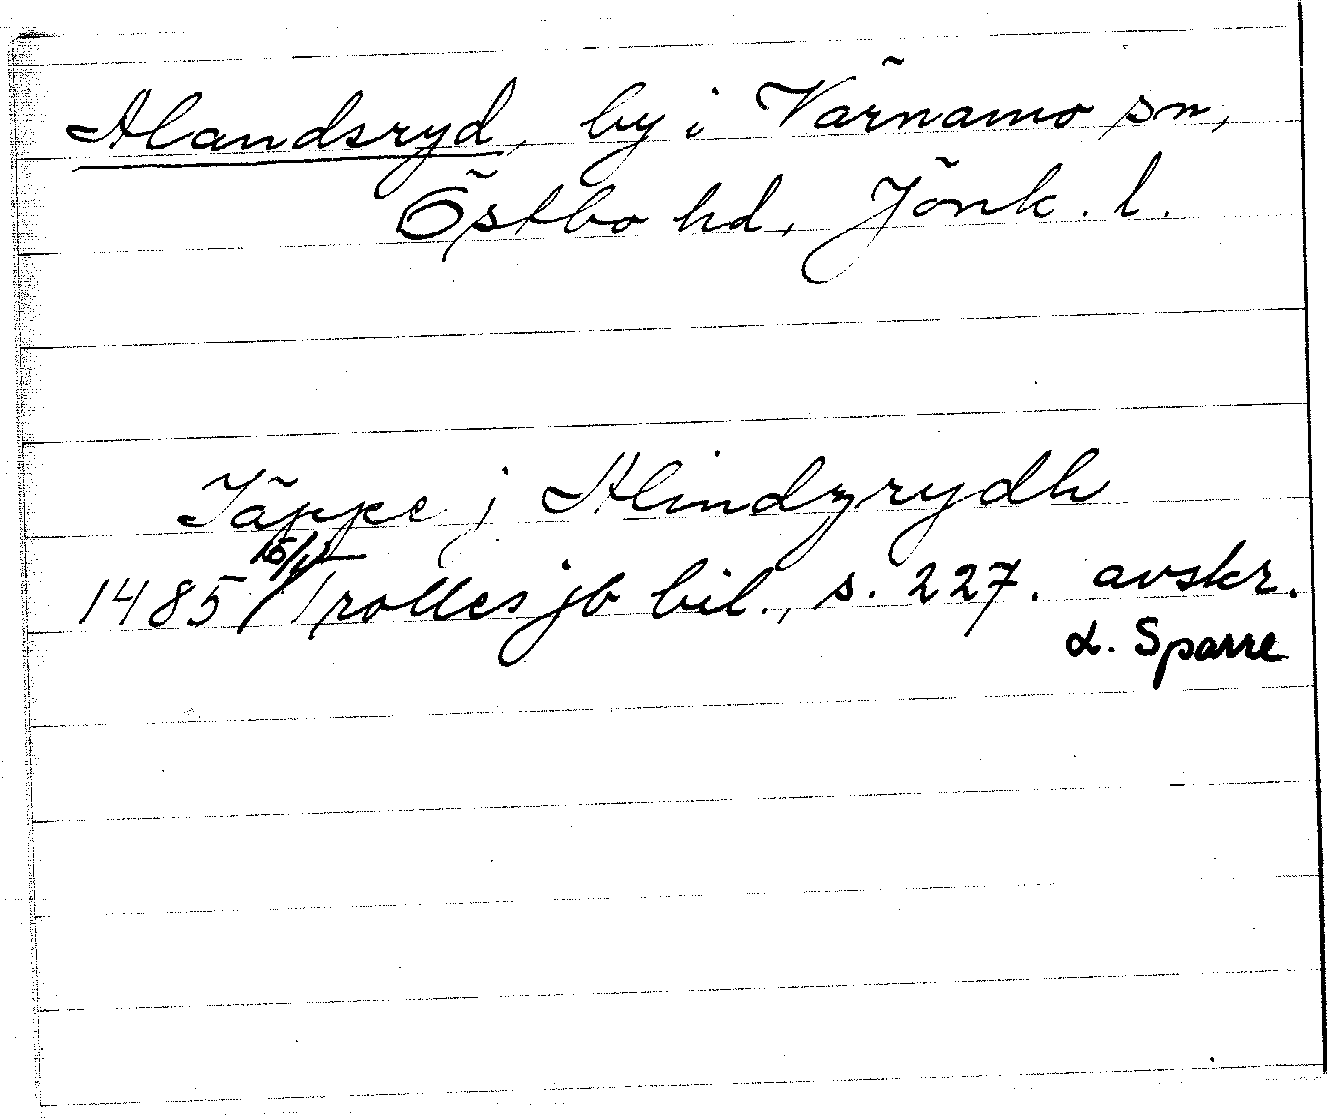 Alandsryd, by i Värnamo sn,
Östbo hd, Jönk. l.
Jäppe j Alindzrydh
1485 15/11 Trolles jb bil., s. 227. avskr.
L. Sparre